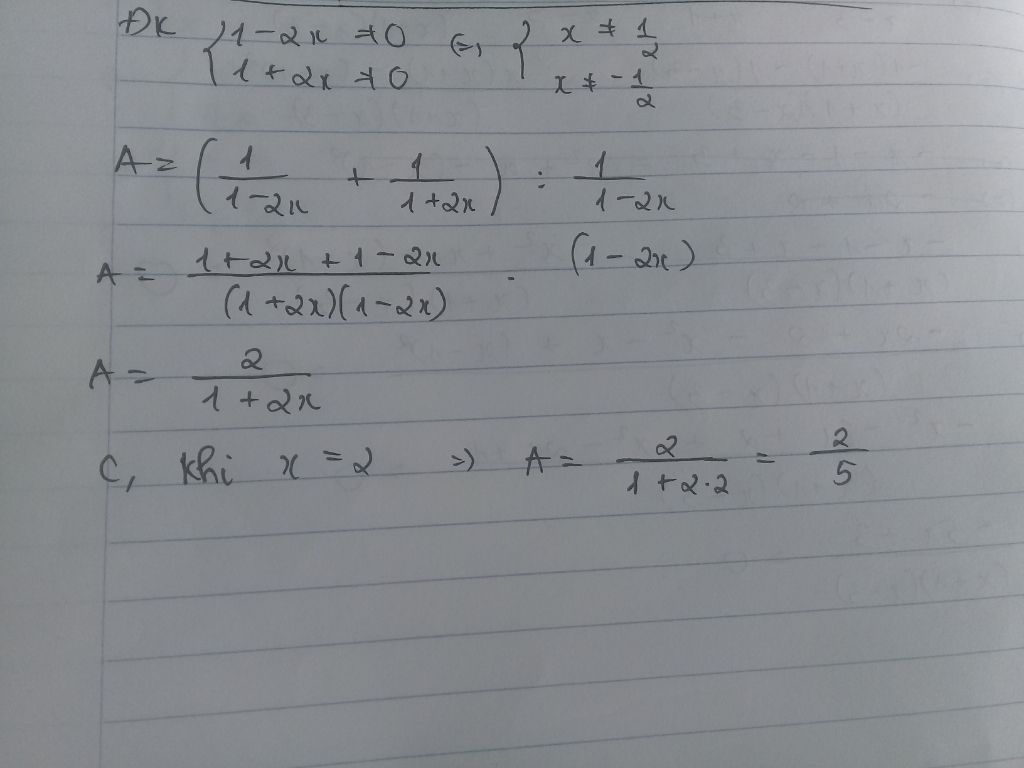 ĐK { 1 - 2x ≠ 0 (=) { x ≠ 1/2
1 + 2x ≠ 0 x ≠ -1/2
A = ( 1/(1-2x) + 1/(1+2x) ) : 1/(1-2x)
A = (1+2x+1-2x)/((1+2x)(1-2x)) . (1-2x)
A = 2/(1+2x)
C, Khi x = 2 => A = 2/(1+2.2) = 2/5